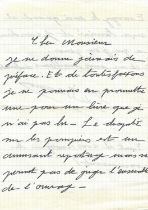 Cher Monsieur
je ne donne jamais de
préface. Et de toutes façons
je ne pourrais en promettre
une pour un livre que je
n'ai pas lu. Le
sur les pompiers est un
amusant mais ne
permet pas de juger l'ensemble
de l'ouvrage.